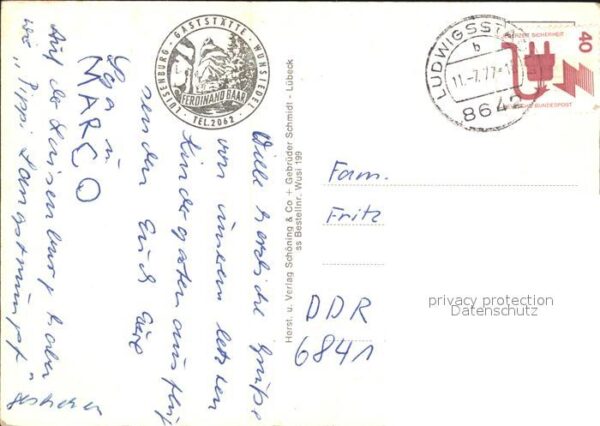 Viele herzliche Grüße
von unserem letzten
Kindergartenausflug
senden Euch Eure
u.
MARCO
Auf der Luisenburg haben
wir „Pippi Langstrumpf“
gesehen
LUISENBURG · GASTSTÄTTE · WUNSIEDEL
FERDINAND BAAR
· TEL. 2062 ·
Herst. u. Verlag Schöning & Co + Gebrüder Schmidt - Lübeck
ss Bestellnr. Wusi 199
LUDWIGSST
b
11.-7.77-
8642
40
SICHERHEIT
DEUTSCHE BUNDESPOST
Fam.
Fritz
DDR
6841
privacy protection
Datenschutz